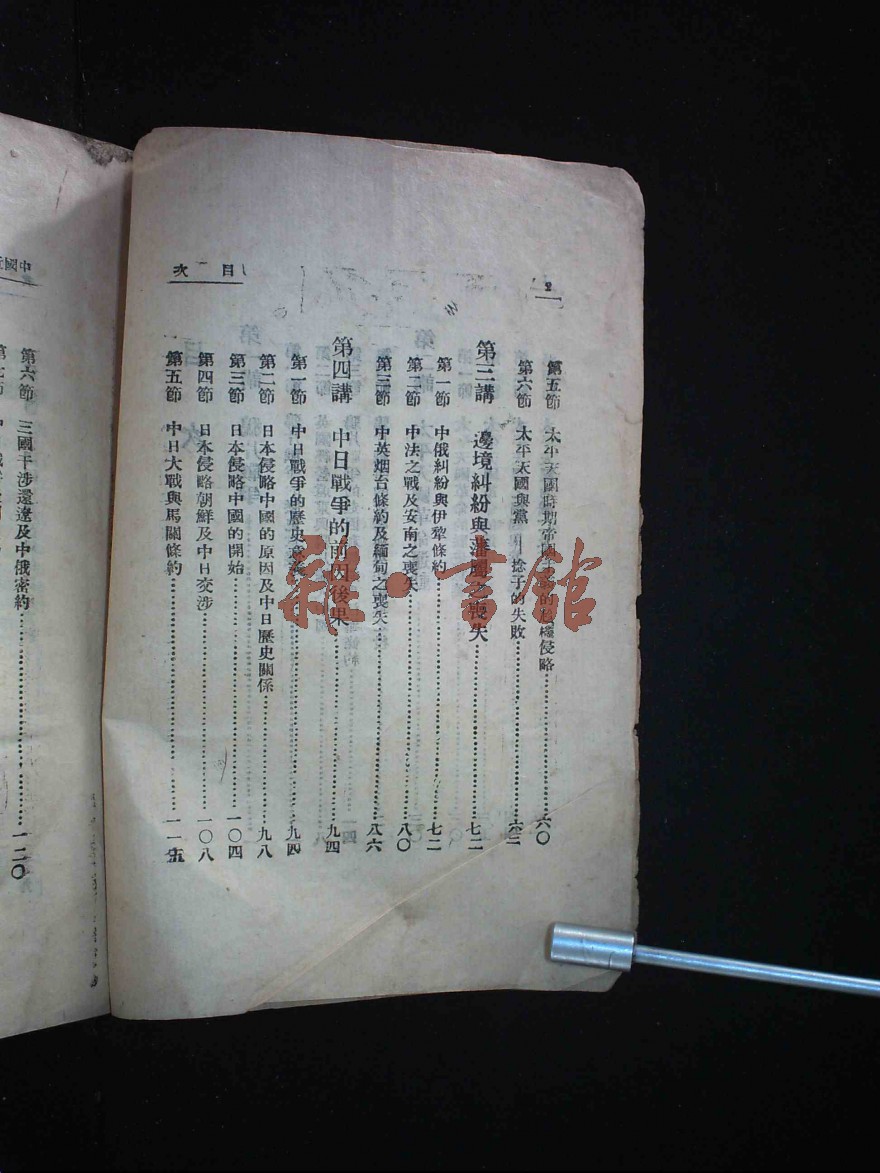 2
目次
第五節 太平天國時期帝國主義的侵略 六〇
第六節 太平天國與黨 捻子的失敗 六三
第三講 邊境糾紛與藩國之喪失 七二
第一節 中俄糾紛與伊犂條約 七二
第二節 中法之戰及安南之喪失 八〇
第三節 中英烟台條約及緬甸之喪失 八六
第四講 中日戰爭的前因後果 九四
第一節 中日戰爭的歷史意義 九四
第二節 日本侵略中國的原因及中日歷史關係 九八
第三節 日本侵略中國的開始 一〇四
第四節 日本侵略朝鮮及中日交涉 一〇八
第五節 中日大戰與馬關條約 一一五
中國
第六節 三國干涉還遼及中俄密約 一二〇
雜·書館